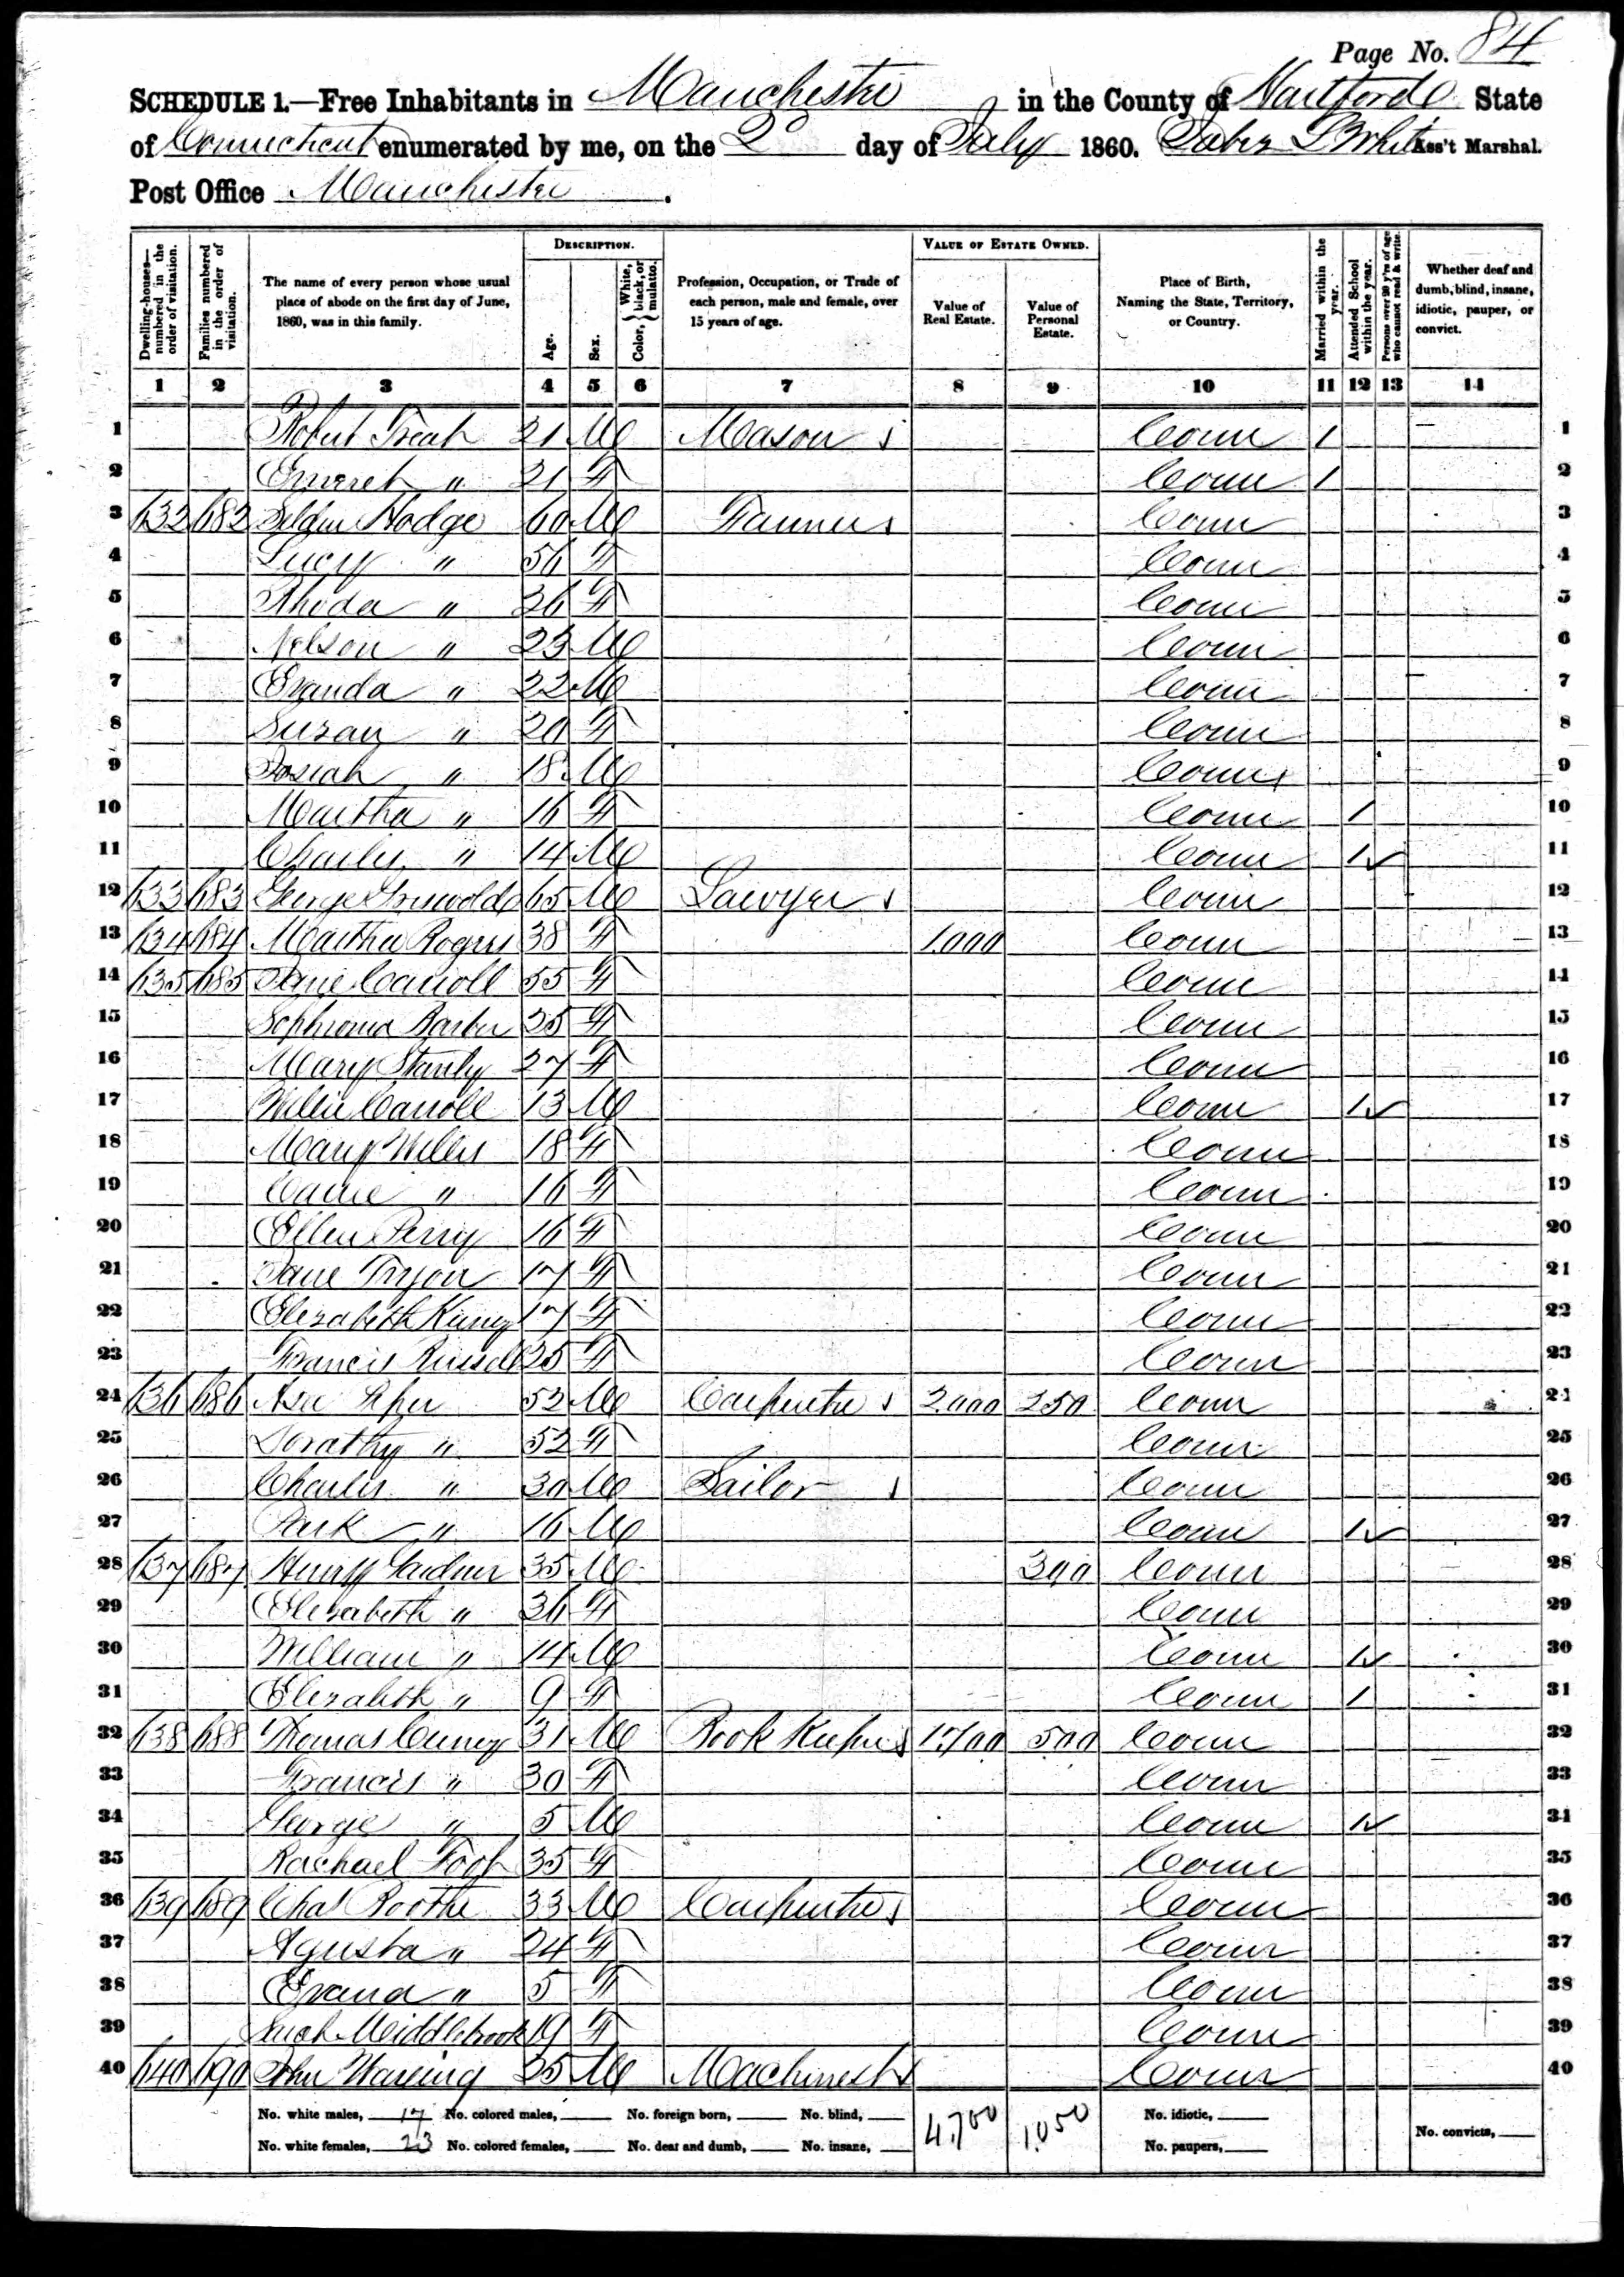 Page No. 84
SCHEDULE 1.—Free Inhabitants in Manchester in the County of Hartford State
of Connecticut enumerated by me, on the 2d day of July 1860. White Ass't Marshal.
Post Office Manchester.
Dwelling-houses—numbered in the order of visitation. Families numbered in the order of visitation. The name of every person whose usual place of abode on the first day of June, 1860, was in this family. DESCRIPTION. Age. Sex. Color, {White, black, or mulatto. Profession, Occupation, or Trade of each person, male and female, over 15 years of age. VALUE OF ESTATE OWNED. Value of Real Estate. Value of Personal Estate. Place of Birth, Naming the State, Territory, or Country. Married within the year. Attended School within the year. Persons over 20 y'rs of age who cannot read & write. Whether deaf and dumb, blind, insane, idiotic, pauper, or convict.
1 2 3 4 5 6 7 8 9 10 11 12 13 14
1 Robert 21 M Mason Conn / 1
2 " 21 F Conn / 2
3 632 682 Hodge 60 M Conn 3
4 Lucy " 56 F Conn 4
5 Rhoda " 26 F Conn 5
6 Nelson " 23 M Conn 6
7 " 22 M Conn 7
8 Suzan " 20 F Conn 8
9 Josiah " 18 M Conn 9
10 Martha " 16 F Conn / 10
11 Charles " 14 M Conn / 11
12 633 683 George Griswold 65 M Lawyer Conn 12
13 634 684 Martha Rogers 38 F 1,000 Conn 13
14 635 685 Carroll 55 F Conn 14
15 Sophronia Barber 25 F Conn 15
16 Mary Stanly 27 F Conn 16
17 Willie Carroll 13 M Conn / 17
18 Mary Willis 18 F Conn 18
19 Carrie " 16 F Conn 19
20 Ellen Perry 16 F Conn 20
21 Jane Tryon 17 F Conn 21
22 Elizabeth 17 F Conn 22
23 Francis Russell 25 F Conn 23
24 636 686 Asa 53 M Carpenter 2,000 250 Conn 24
25 Dorathy " 52 F Conn 25
26 Charles " 30 M Sailor Conn 26
27 " 16 M Conn / 27
28 637 687 Henry Gardner 35 M 300 Conn 28
29 Elizabeth " 36 F Conn 29
30 William " 14 M Conn / 30
31 Elizabeth " 9 F Conn / 31
32 638 688 Thomas 31 M Book Keeper 1,700 500 Conn 32
33 Francis " 30 F Conn 33
34 George " 5 M Conn / 34
35 Rachael Foot 35 F Conn 35
36 639 689 Chas Boothe 33 M Carpenter Conn 36
37 Agusta " 24 F Conn 37
38 " 5 F Conn 38
39 Sarah Middlebrook 19 F Conn 39
40 640 690 John 25 M Machinest Conn 40
No. white males, 17 No. colored males, No. foreign born, No. blind, 4,700 1,050 No. idiotic,
No. white females, 23 No. colored females, No. deaf and dumb, No. insane, No. paupers, No. convicts,